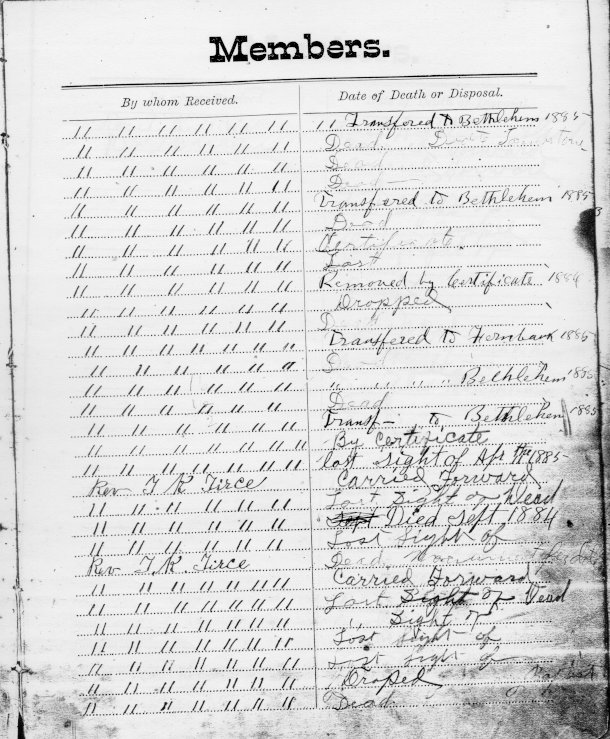 Members.
By whom Received. Date of Death or Disposal.
" " " " " " " " Transfered to Bethlehem 1885
" " " " " " Dead
" " " " " " Dead
" " " " " " Dead
" " " " " " Transfered to Bethlehem 1885
" " " " " " Dead
" " " " " " Certificate
" " " " " " Lost
" " " " " " Removed by Certificate 1884
" " " " " " Dropped
" " " " " "
" " " " " " " Transfered to Fernbank 1885
" " " " " "
" " " " " " " " " " Bethlehem 1885
" " " " " " Dead
" " " " " " Transf- to Bethlehem 1885
" " " " " " " By Certificate
" " " " " " " lost sight of 1885
Rev T K Tirce Carried Forward
" " " " " " Lost Sight of Dead
" " " " " " Sept Died Sept 1884
" " " " " " Lost Sight of
Rev T K Tirce Dead
" " " " " " Carried Forward
" " " " " " Lost Sight of Dead
" " " " " " " Sight of
" " " " " " Lost sight of
" " " " " " Lost sight of
" " " " " " Droped
" " " " " " Dead